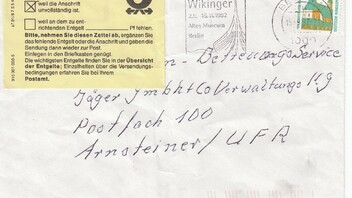 weil die Anschrift
unvollständig ist.
weil an dem zu ent-
richtenden Entgelt Pf fehlen.
Bitte, nehmen Sie diesen Zettel ab, ergänzen Sie
das fehlende Entgelte oder die Anschrift und geben die
Sendung dann wieder zur Post.
Einlegen in den Briefkasten genügt.
Die wichtigsten Entgelte finden Sie in der Übersicht
der Entgelte; Einzelheiten über die Versendungs-
bedingungen erfahren Sie bei Ihrem
Postamt.
Wikinger
1992
Altes Museum
Berlin
Service
Jäger
Postfach 100
Arnsteiner / UFR